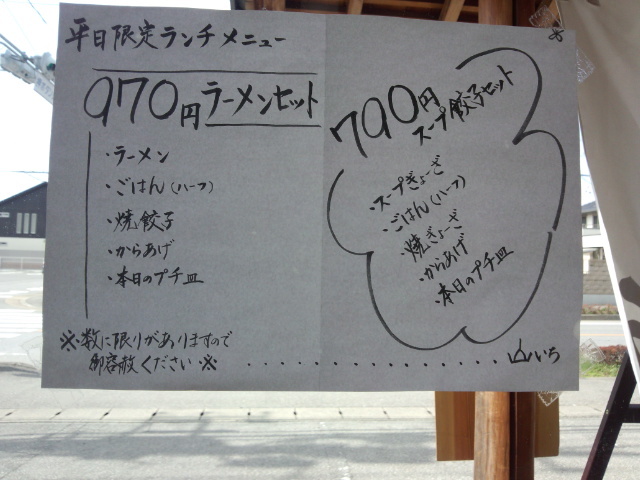 平日限定ランチメニュー
970円ラーメンセット
・ラーメン
・ごはん(ハーフ)
・焼餃子
・からあげ
・本日のプチ皿
790円
スープ餃子セット
・スープぎょーざ
・ごはん(ハーフ)
・焼ぎょーざ
・からあげ
・本日のプチ皿
※数に限りがありますので
御容赦ください※
..................山いち